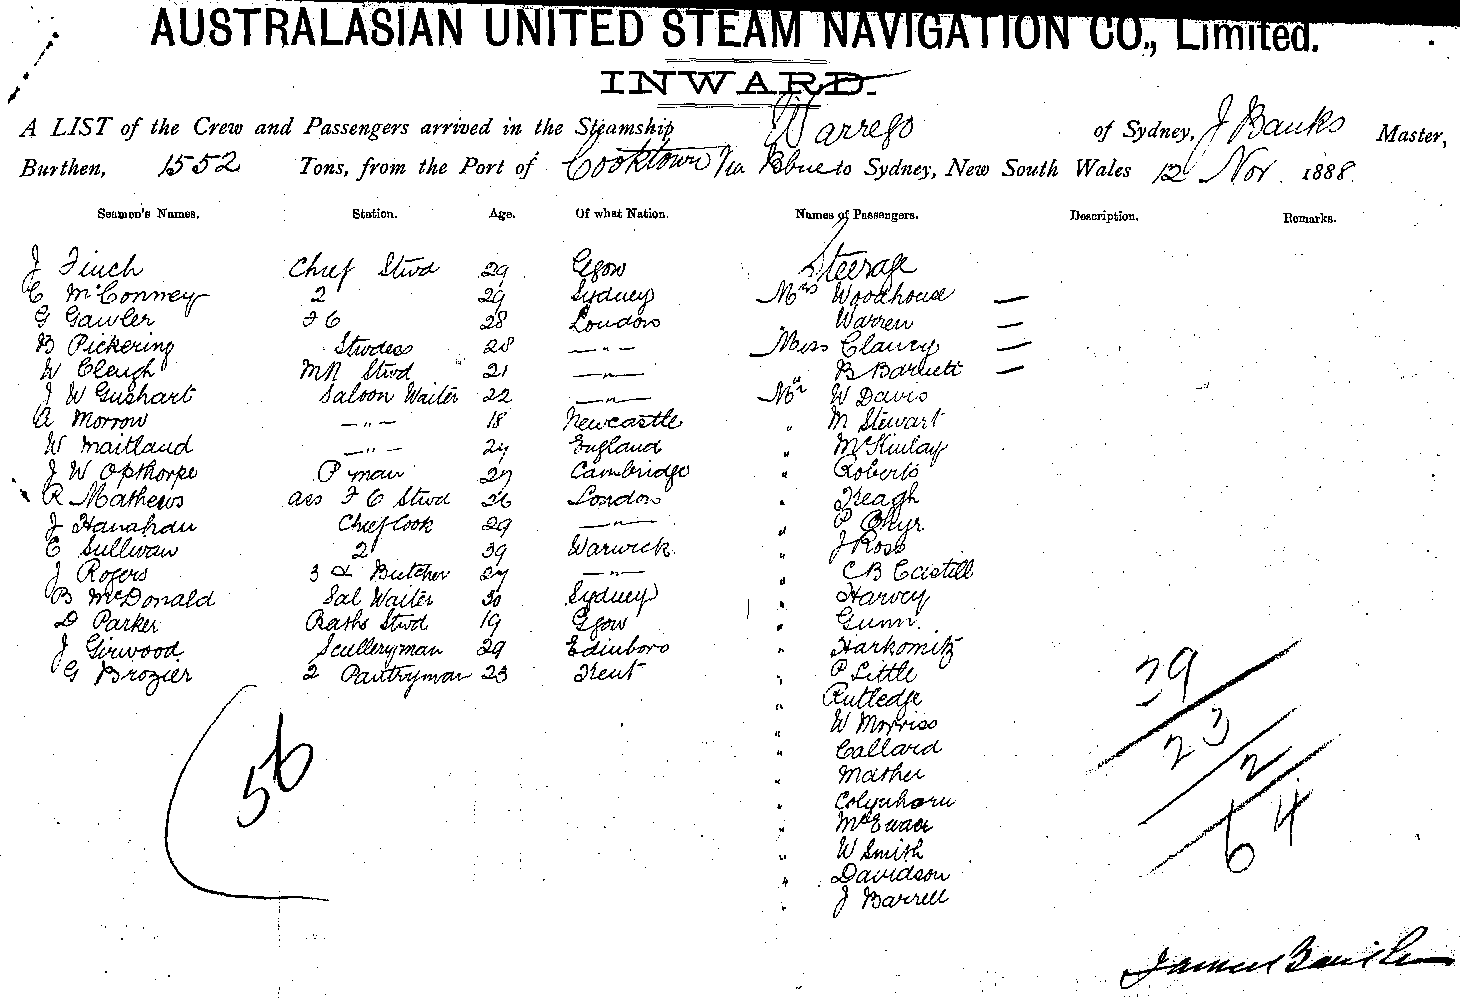 AUSTRALASIAN UNITED STEAM NAVIGATION CO., Limited.
INWARD.
A LIST of the Crew and Passengers arrived in the Steamship Warrego of Sydney, J Banks Master,
Burthen, 1552 Tons, from the Port of Cooktown Via Bbne to Sydney, New South Wales 12 Nov. 1888.
Seamen's Names. Station. Age. Of what Nation. Names of Passengers. Description. Remarks.
Steerage
J Finch Chief Stwd 29 Glgow
C McConney 2 29 Sydney Mrs Woodhouse —
G Gawler F C 28 London Warren —
B Pickering Stwdess 28 — " — Miss Clancy —
W Cleugh MR Stwd 21 — " — B Barnett —
J W Gushart Saloon Waiter 22 — " — Mr W Davis
A Morrow — " — 18 Newcastle " M Stewart
W Maitland — " — 24 England " McKinlay
J W Opthorpe P man 27 Cambridge " Roberts
R Mathews ass F C Stwd 26 London " Keagh
J Hanahan Chief Cook 29 — " — " P
C Sullivan 2 39 Warwick " J Ross
J Rogers 3 & Butcher 27 — " — " C B Castill
B McDonald Sal Waiter 30 Sydney " Harvey
D Parker Baths Stwd 19 Glgow " Gunn.
J Girwood Sculleryman 29 Edinboro " Harkomitz
G Brozier 2 Pantryman 23 Kent " P Little
" Rutledge
" W Morriss
" Callard
" Mather
" Colquhoun
" McEwan
" W Smith
" Davidson
" J Barrell
56
39
23
2
64
James Banks